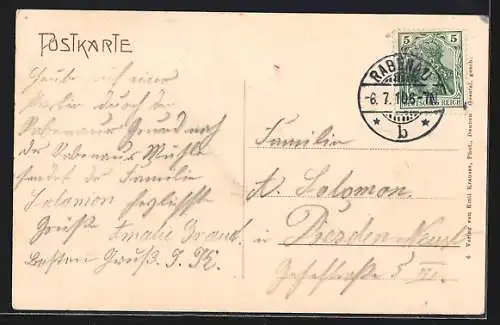 POSTKARTE
Heute auf einer
Partie durch den
Rabenauer Grund nach
der Rabenauer Mühle
sendet der Familie
Salomon herzlichste
Grüße Amalie Brand.
Besten Gruß.
5 5
DEUTSCHES REICH
RABENAU
-6. 7. 10.6-7N.
* b *
Familie
A. Salomon.
in Dresden Neust.
5 III.
Verlag von Emil Krauses, Dresden gesch.